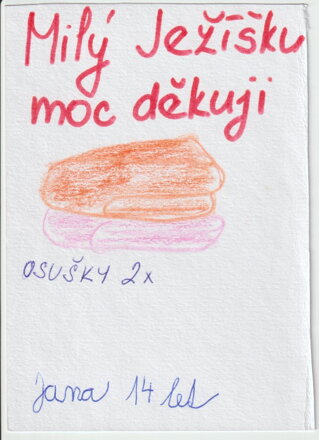 Milý Ježíšku
moc děkuji
OSUŠKY 2x
Jana 14 let